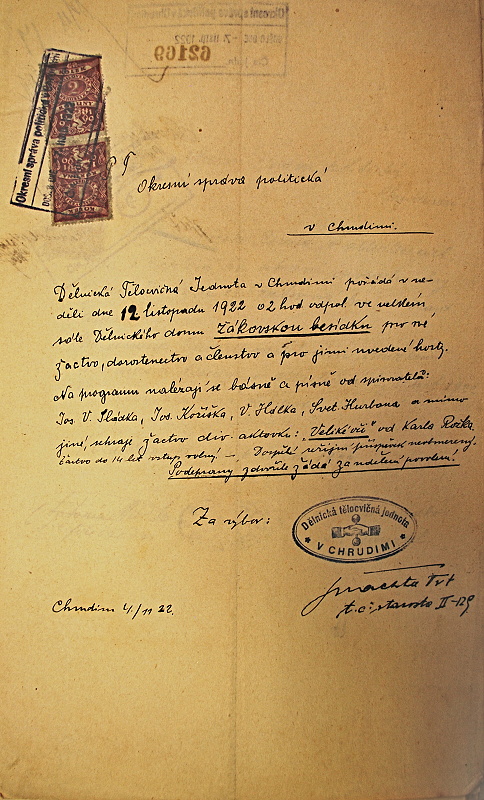 62169
Okresní správa politická
P T
Okresní správa politická
v Chrudimi.
Dělnická Tělocvičná Jednota v Chrudimi pořádá v ne-
děli dne 12 listopadu 1922 o 2 hod. odpol. ve velkém
sále Dělnického domu Žákovskou besídku pro své
žactvo, dorostenectvo a členstvo a pro jimi uvedené hosty.
Na programu nalézají se básně a písně od spisovatelů:
Jos. V. Sládka, Jos. Kožíška, V. Hálka, Svet. Hurbana a mimo
jiné, sehraje žactvo div. aktovku: „Veliké oči" od Karla
žactvo do 14 let vstup volný —. Dospělí režijní příspěvek neobmezený.
Podepsaný zdvořile žádá za udělení povolení.
Za výbor:
Dělnická tělocvičná jednota
V CHRUDIMI
Chrudim 4/11 22.
t. č. starosta II-129